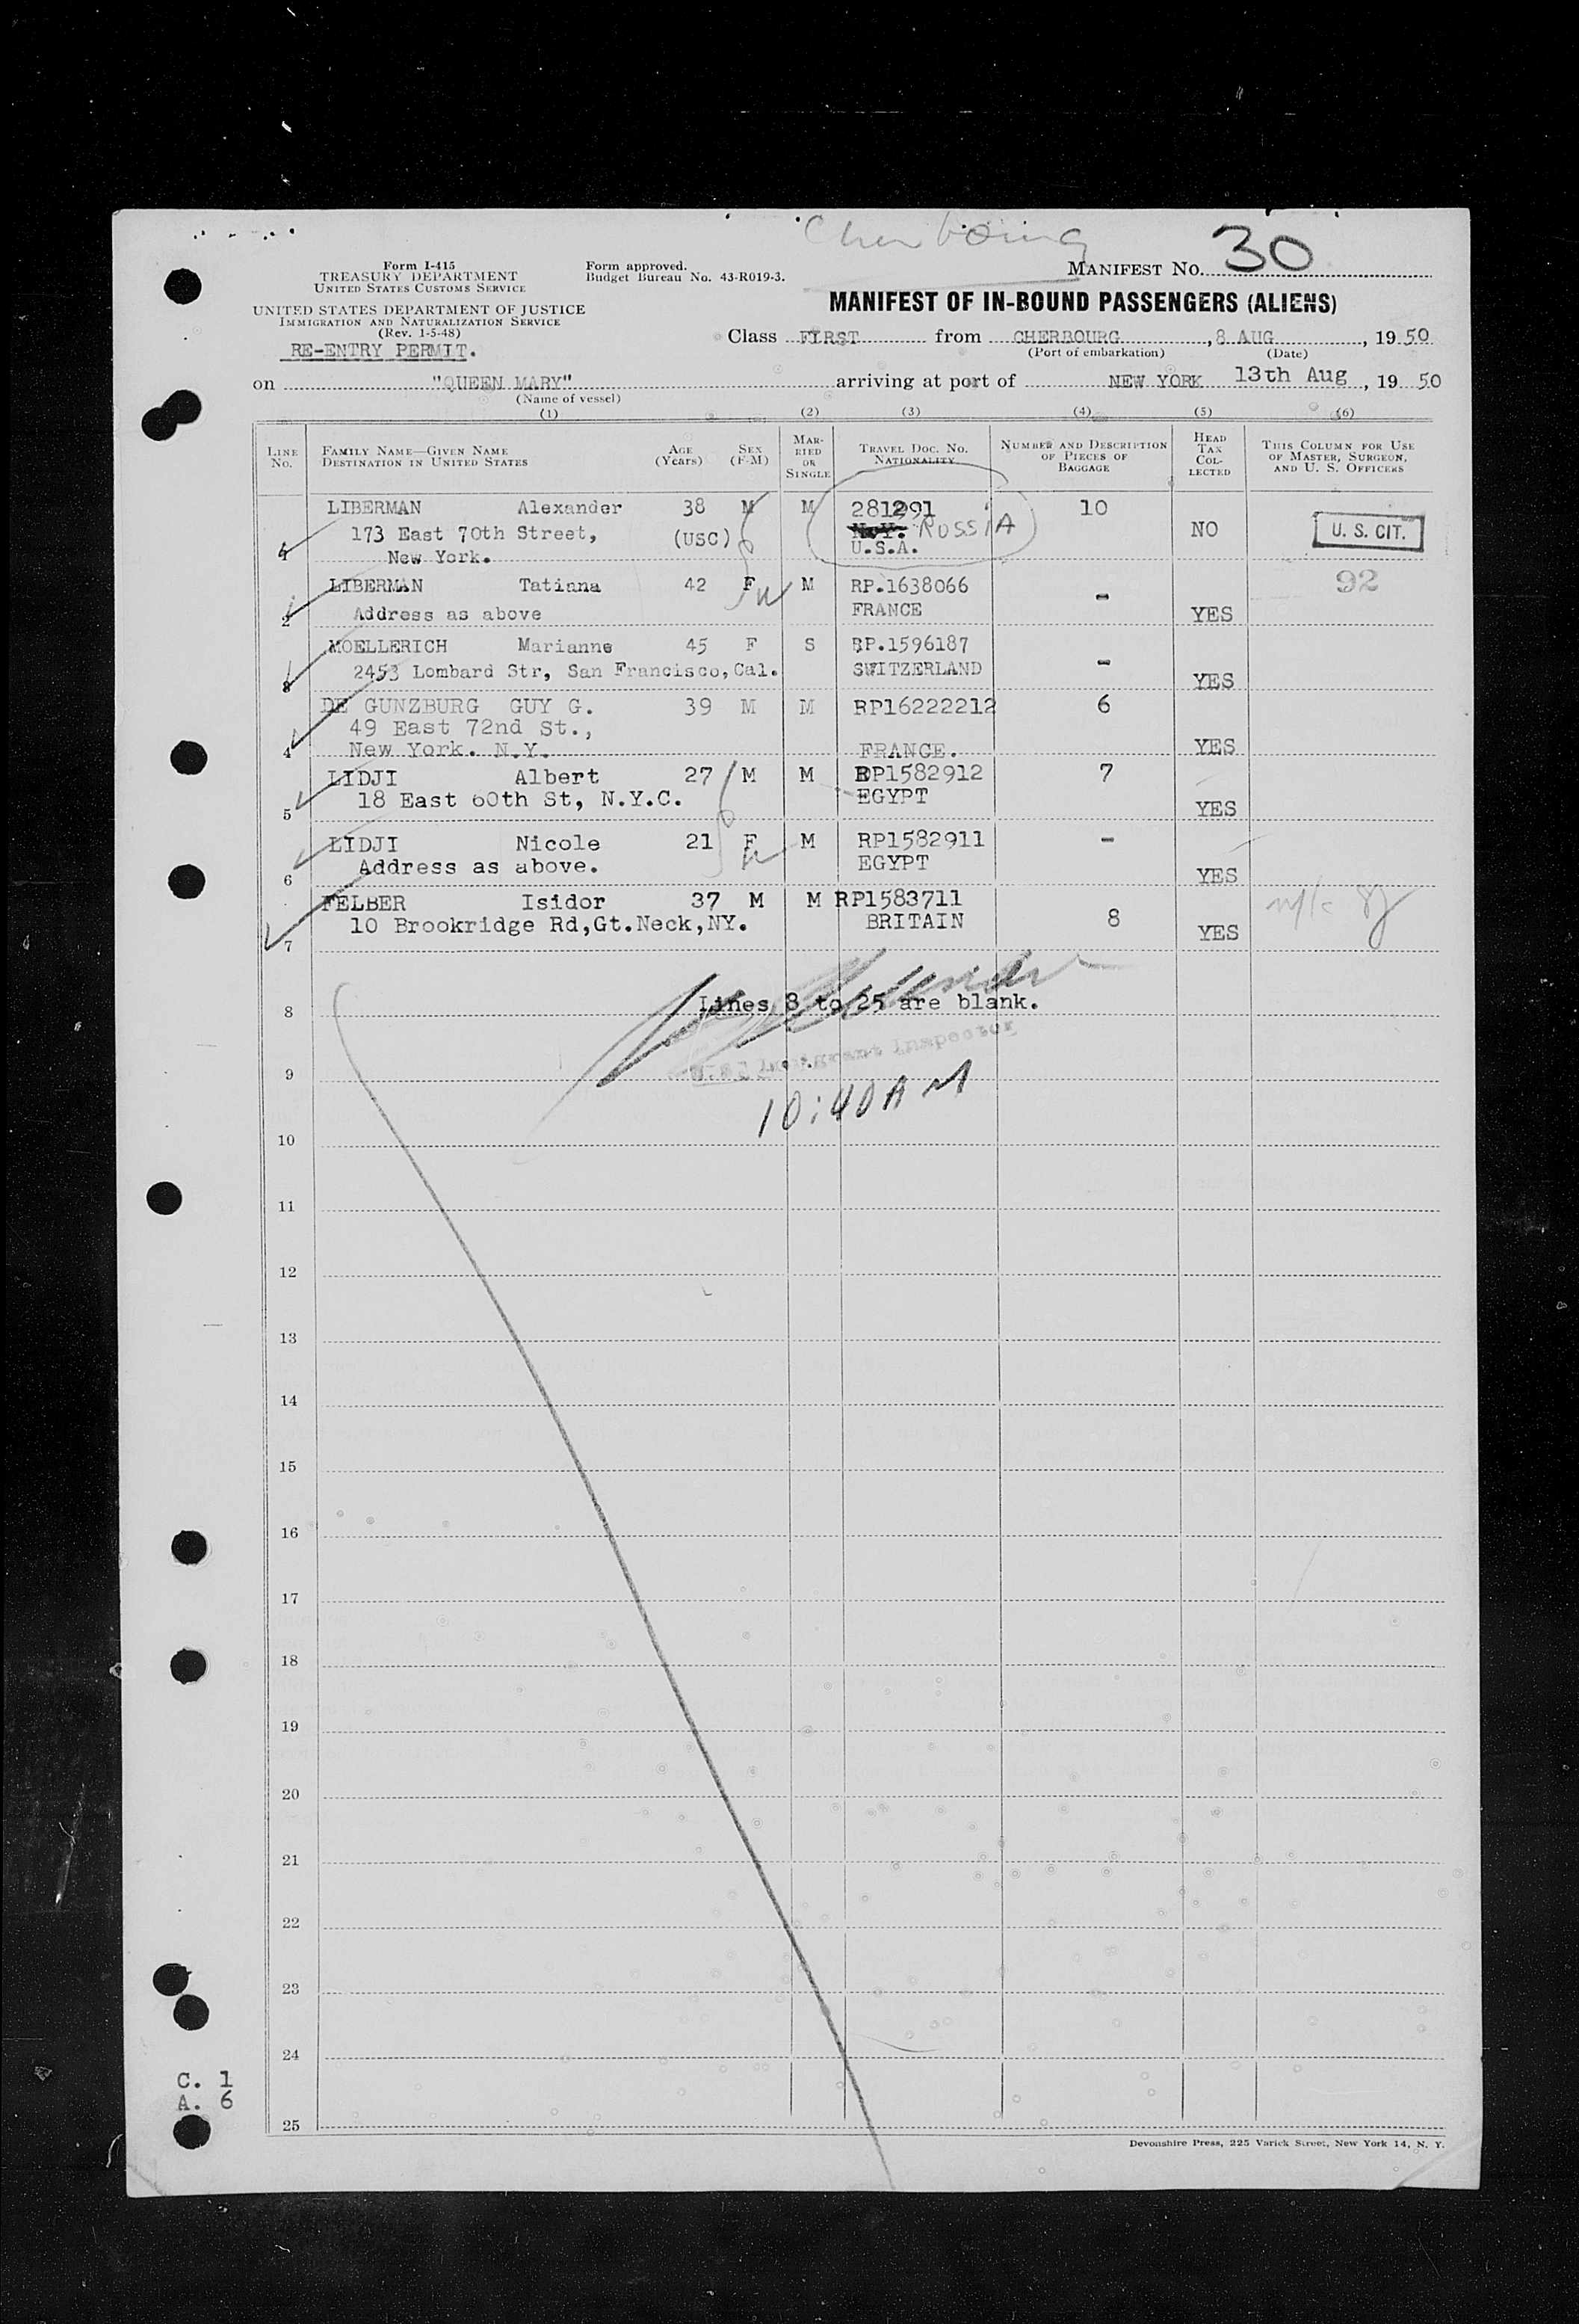 Cherbourg
Form I-415
TREASURY DEPARTMENT
UNITED STATES CUSTOMS SERVICE
Form approved.
Budget Bureau No. 43-R019-3.
MANIFEST NO. 30
UNITED STATES DEPARTMENT OF JUSTICE
IMMIGRATION AND NATURALIZATION SERVICE
(Rev. 1-5-48)
RE-ENTRY PERMIT.
MANIFEST OF IN-BOUND PASSENGERS (ALIENS)
Class FIRST from CHERBOURG, 8 AUG, 19 50
(Port of embarkation) (Date)
on "QUEEN MARY" arriving at port of NEW YORK 13th Aug, 19 50
(Name of vessel)
(1) (2) (3) (4) (5) (6)
LINE No. FAMILY NAME—GIVEN NAME DESTINATION IN UNITED STATES AGE (Years) SEX (F-M) MARRIED OR SINGLE TRAVEL DOC. NO. NATIONALITY NUMBER AND DESCRIPTION OF PIECES OF BAGGAGE HEAD TAX COLLECTED THIS COLUMN FOR USE OF MASTER, SURGEON, AND U. S. OFFICERS
LIBERMAN Alexander 38 M M 281291 10
173 East 70th Street, (USC) N.Y. RUSSIA NO U. S. CIT.
New York. U.S.A.
LIBERMAN Tatiana 42 F M RP.1638066 - 92
2 Address as above W FRANCE YES
MOELLERICH Marianne 45 F S RP.1596187 -
3 2453 Lombard Str, San Francisco, Cal. SWITZERLAND YES
DE GUNZBURG GUY G. 39 M M RP16222212 6
49 East 72nd St.,
4 New York. N.Y. FRANCE. YES
LIDJI Albert 27 M M RP1582912 7
5 18 East 60th St, N.Y.C. EGYPT YES
LIDJI Nicole 21 F M RP1582911 -
6 Address as above. W EGYPT YES
FELBER Isidor 37 M M RP1583711
7 10 Brookridge Rd,Gt.Neck,NY. BRITAIN 8 YES
8 Lines 8 to 25 are blank.
Immigrant Inspector
9
10:40 AM
10
11
12
13
14
15
16
17
18
19
20
21
22
23
24
C. 1
A. 6
25
Devonshire Press, 225 Varick Street, New York 14, N. Y.